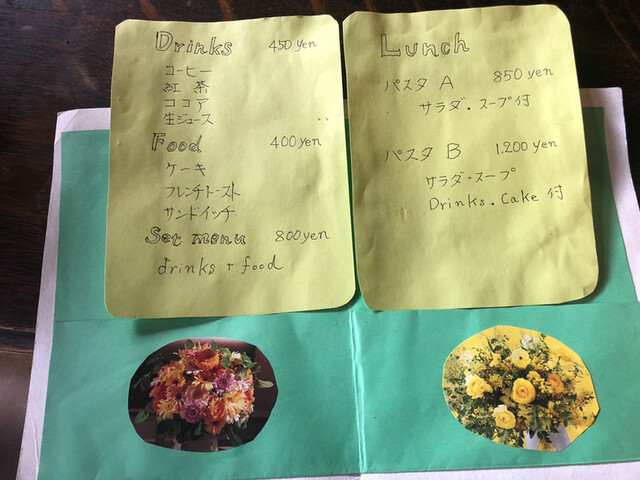 Drinks 450 yen
コーヒー
紅茶
ココア
生ジュース
Food 400 yen
ケーキ
フレンチトースト
サンドイッチ
Set menu 800 yen
drinks + food
Lunch
パスタ A 850 yen
サラダ・スープ付
パスタ B 1.200 yen
サラダ・スープ
Drinks・Cake 付